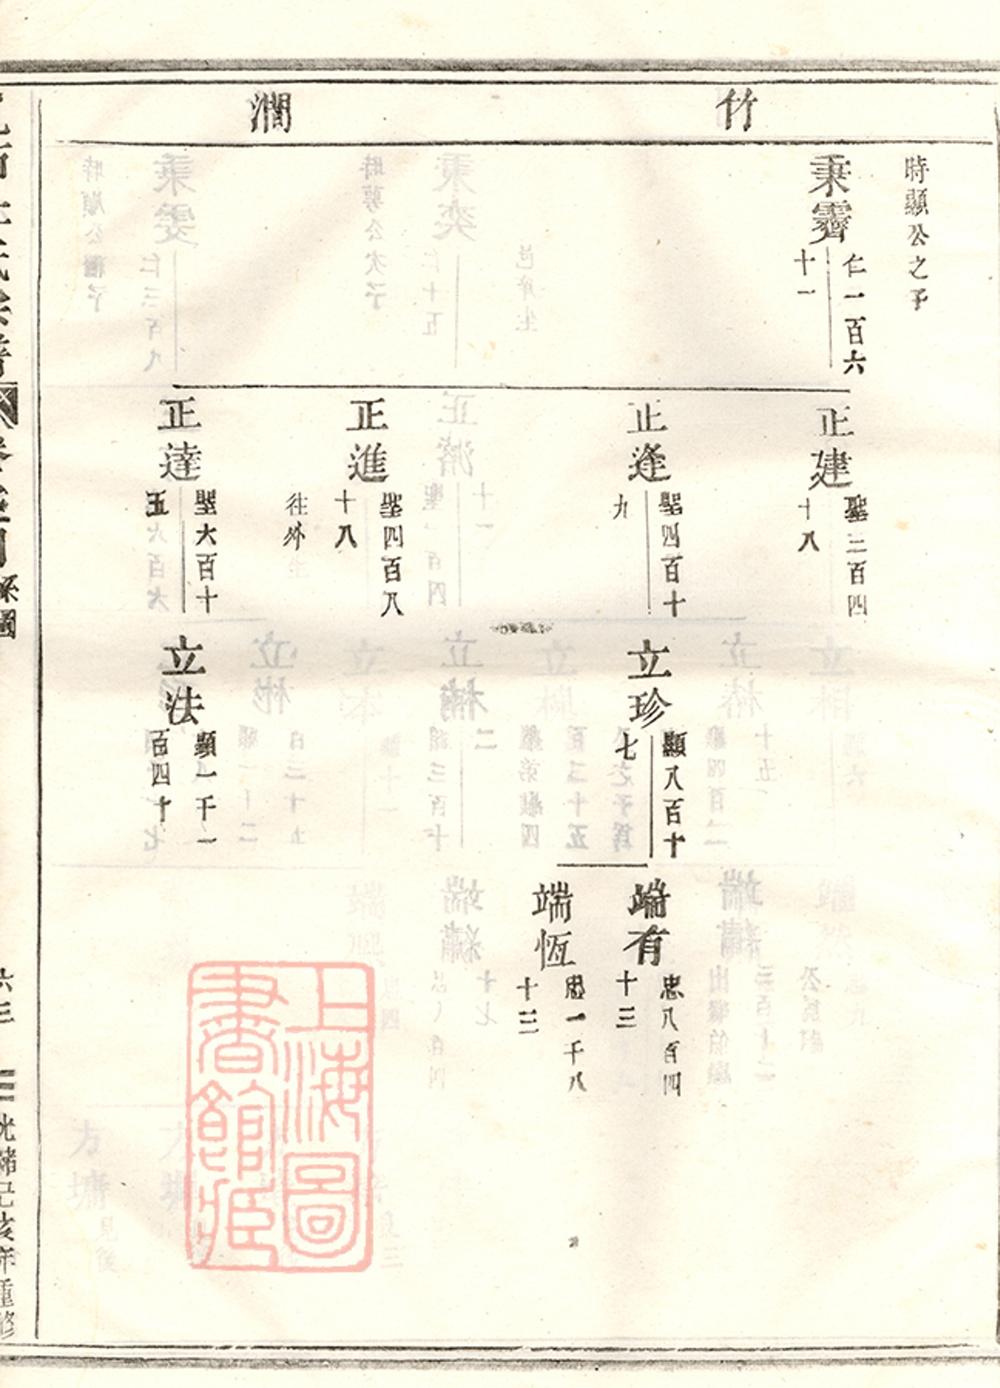 竹
澗
時顯公之子
秉霽
仁一百六
十一
正建
聖二百四
十八
正逢
聖四百十
九
正進
聖四百八
十八
往外
正達
聖六百十
五
立珍
顯八百十
七
立法
顯一千一
百四十
端有
忠八百四
十三
端恆
忠一千八
十三
系圖
光緒己亥年重修
上海圖
書館藏